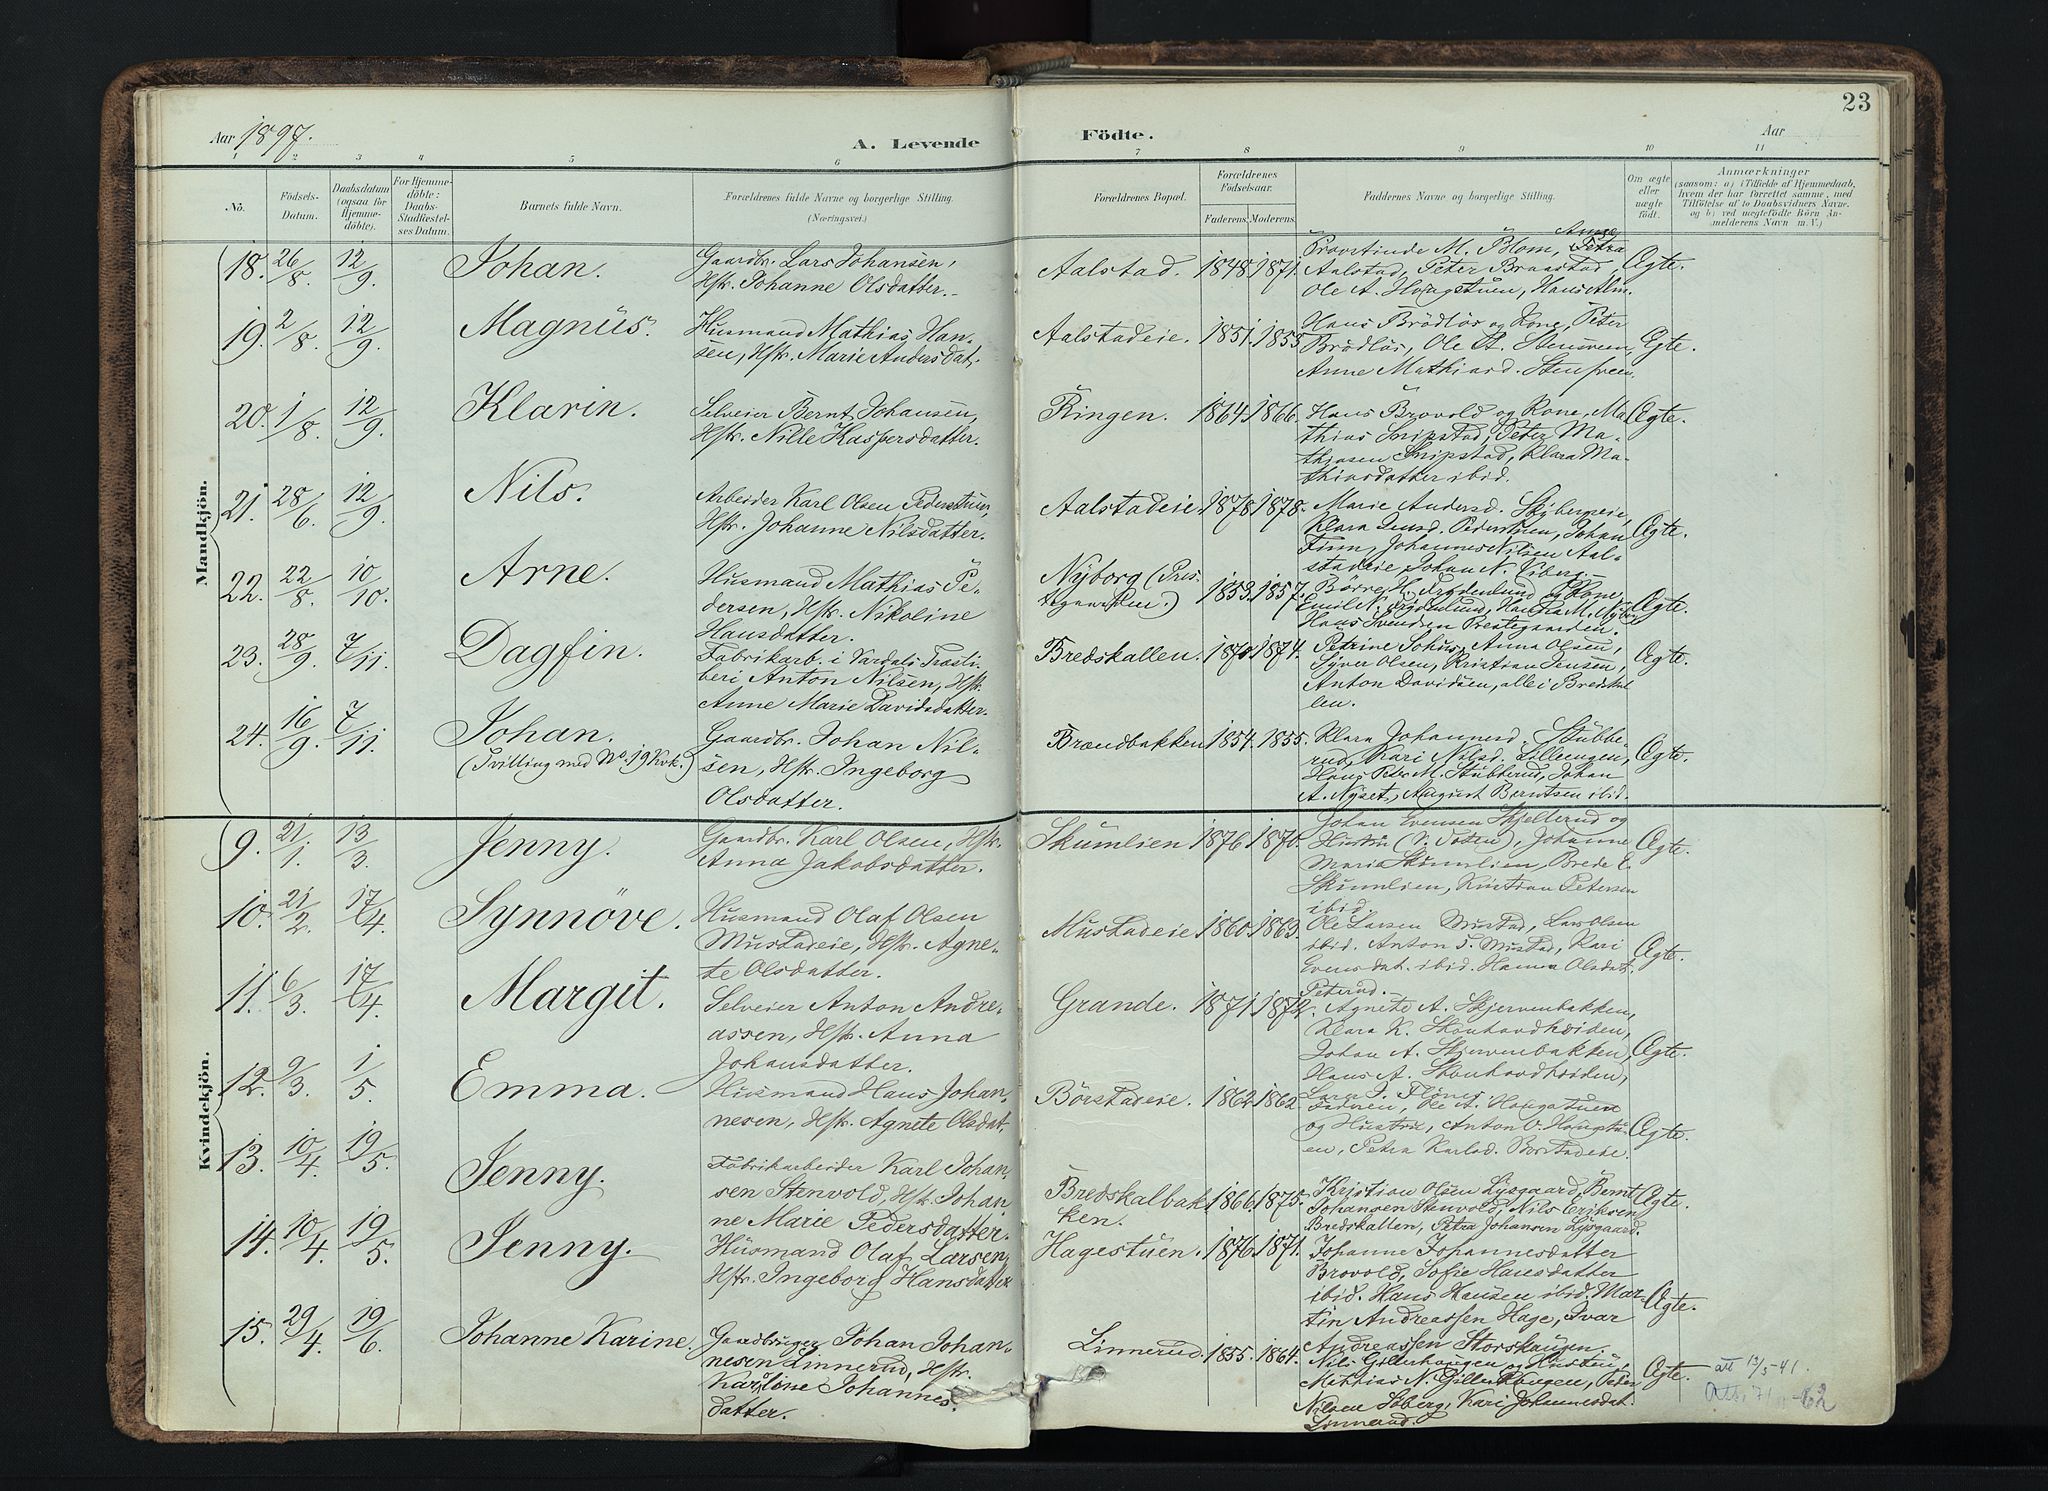 23
Aar 1897.
A. Levende Födte.
Aar
1 2 3 4 5 6 7 8 9 10 11
Nô.
Födsels-Datum.
Daabsdatum (ogsaa for Hjemme-döbte).
For Hjemme-döbte: Daabs-Stadfæstel-ses Datum.
Barnets fulde Navn.
Forældrenes fulde Navne og borgerlige Stilling. (Næringsvei.)
Forældrenes Bopæl.
Forældrenes Födselsaar.
Faderens. Moderens.
Faddernes Navne og borgerlige Stilling.
Om ægte eller uægte födt.
Anmærkninger
(saasom: a) i Tilfælde af Hjemmedaab, hvem der har forrettet samme, med Tilföielse af to Daabsvidners Navne, og b) ved uægtefödte Börn Anmelderens Navn m. V.)
Mandkjön.
18. 26/8. 12/9. Johan. Gaardbr. Lars Johansen,
Hstr. Johanne Olsdatter.
Aalstad. 1848. 1871. Provstinde M. Blom, Anne Petra
Aalstad, Peter Braastad,
Ole A. Hougstuen, Hans Alm.
Ægte.
19. 2/8. 12/9. Magnus. Husmand Mathias Han-
sen, Hstr. Marie Andersdat.
Aalstadeie. 1851. 1855. Hans Brödlös og Kone, Peter
Brödlös, Ole A. Stensveen,
Anne Mathiasd. Stensveen.
Ægte.
20. 1/8. 12/9. Klarin. Selveier Bernt Johansen,
Hstr. Nille Kaspersdatter.
Ringen. 1864. 1866. Hans Brovold og Kone, Ma-
thias Snipstad, Peter Ma-
thiasen Snipstad, Klara Ma-
thiasdatter ibid.
Ægte.
21. 28/6. 12/9. Nils. Arbeider Karl Olsen Pedersstuen,
Hstr. Johanne Nilsdatter.
Aalstadeie. 1878. 1878. Marie Andersd. Skybergeie,
Klara Pedersstuen, Johan
Johannes Nilsen Aal-
stadeie, Johan N. Viberg.
Ægte.
22. 22/8. 10/10. Arne. Husmand Mathias Pe-
dersen, Hstr. Nikoline
Hansdatter.
Nyborg (Pres-
tegaarden.) 1853. 1857. Börre H. Frydenlund og Kone,
Emil N. Frydenlund, M. Nyborg
Hans Svendsen Prestegaarden.
Ægte.
23. 28/9. 7/11. Dagfin. Fabrikarb. i Vardals Træsli-
beri Anton Nilsen, Hstr.
Anne Marie Davidsdatter.
Bredskallen. 1870. 1874. Petrine Anna Olsen,
Syver Olsen, Kristian Jensen,
Anton Davidsen, alle i Bredskal
len.
Ægte.
24. 16/9. 7/11. Johan.
(Tvilling med No. 19 Kvk.)
Gaardbr. Johan Nil-
sen, Hstr. Ingeborg
Olsdatter.
Brændbakken 1854. 1855. Klara Johannesd. Stubbe-
rud, Kari Nilsd. Lilleengen,
Hans Peter M. Stubberud, Johan
A. Nyset, August Berntsen ibid.
Ægte.
Kvindekjön.
9. 21/1. 13/3. Jenny. Gaardbr. Karl Olsen, Hstr.
Anna Jakobsdatter.
Skumlien 1876 1870. Johan Evensen Skjelterud og
Hustru (V. Toten), Johanne
Maria Skumlien, Brede E.
Skumlien, Kristian Petersen
ibid.
Ægte.
10. 21/2. 17/4. Synnöve. Husmand Olaf Olsen
Mustadeie, Hstr. Agne-
te Olsdatter.
Mustadeie 1860. 1863. Ole Larsen Mustad, Lars Olsen
ibid. Anton T. Mustad, Kari
Evensdat. ibid. Hanna Olsdat.
Peterud.
Ægte.
11. 6/3. 17/4. Margit. Selveier Anton Andre-
assen, Hstr. Anna
Johansdatter.
Grande. 1871. 1872. Agnete A. Skjervenbakken,
Klara K. Skonhovdhreiden,
Johan A. Skjervenbakken,
Hans A. Skonhovdhreiden,
Ægte.
12. 9/3. 1/5. Emma. Husmand Hans Johan-
nesen, Hstr. Agnete Olsdat.
Börstadeie. 1862 1862 Lars J.
Ole A. Hougstuen
og Hustru, Anton O. Hougstu-
en, Petra Karlsd. Börstadeie.
Ægte.
13. 10/4. 19/5. Jenny. Fabrikarbeider Karl Johan-
sen Stenvold, Hstr. Johan-
ne Marie Pedersdatter.
Bredskalbak-
ken. 1866. 1875. Kristian Olsen Lysgaard, Bernt
Johansen Stenvold, Nils Eriksen
Bredskallen, Petra Johansen Lysgaard.
Ægte.
14. 10/4. 19/5. Jenny. Husmand Olaf Larsen,
Hstr. Ingeborg Hansdatter
Hagestuen. 1876. 1871. Johanne Johannesdatter
Brovold, Sofie Hansdatter
ibid. Hans Hansen ibid. Mar-
tin Andreassen Hage, Ivar
Andreassen Storshaugen.
Ægte.
15. 29/4. 19/6. Johanne Karine. Gaardbruger Johan Johan-
nesen Linnerud, Hstr.
Karoline Johannes-
datter.
Linnerud. 1855. 1864. Nils Gillerhaugen og Hustru,
Mathias N. Gillerhaugen, Peder
Nilsen Söberg, Kari Johannesdat.
Linnerud.
Ægte.
att 13/5-41.